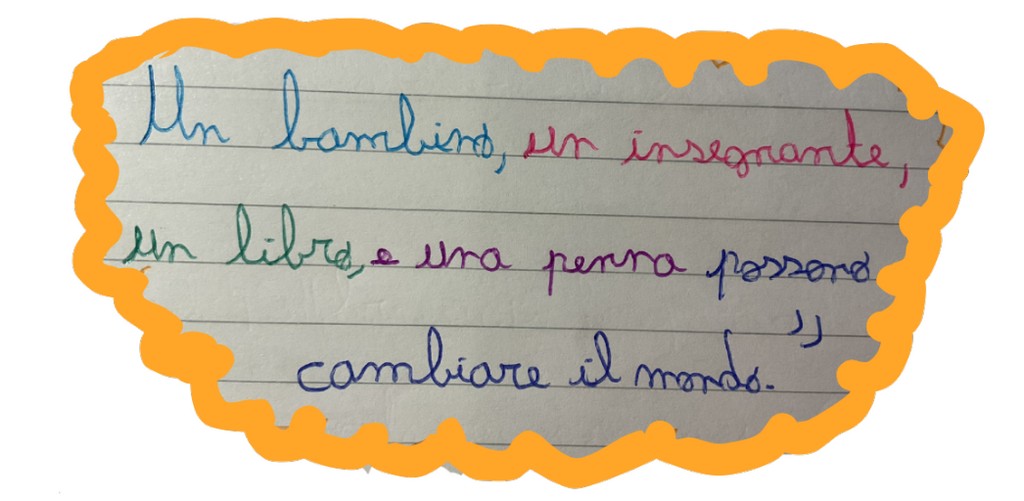 Un bambino, un insegnante,
un libro, e una penna possono
cambiare il mondo.”